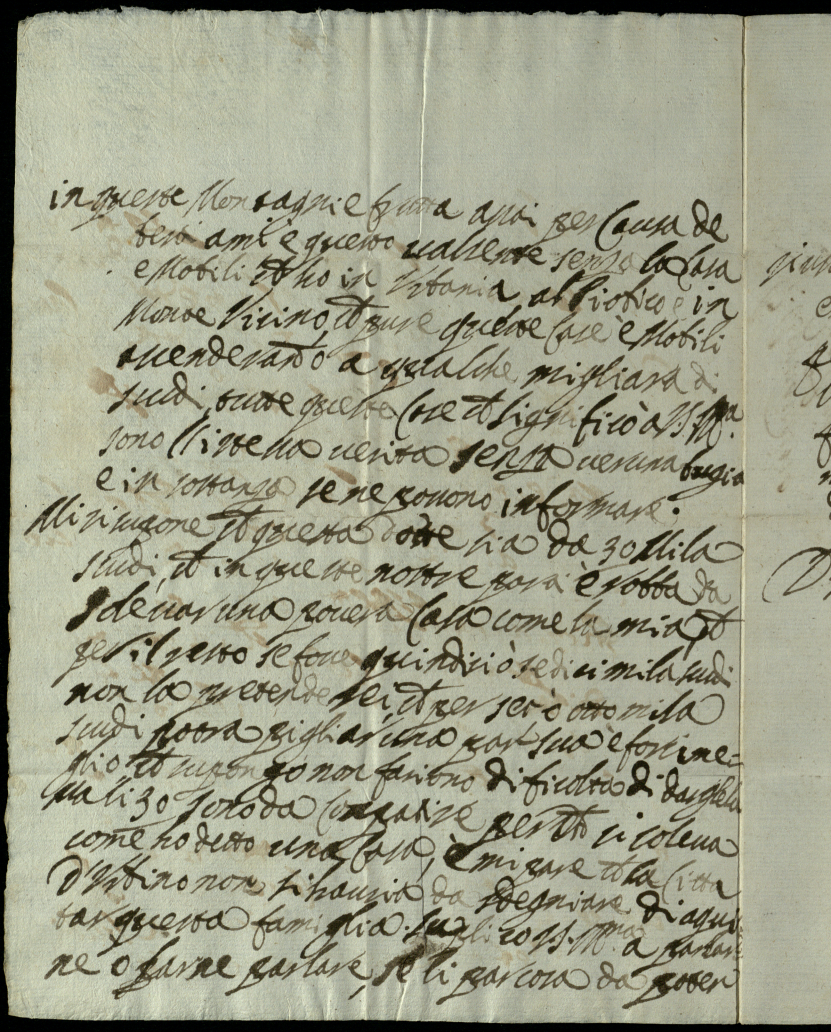 in queste Montagnie frutta assai per Causa de
besti ami è questo ualsente senza la Casa
e Mobili ch ho in Urbania, al Piobico e in
Monte Vicino, ch pure queste Case e Mobili
ascenderano a qualche migliara di
scudi, tutte queste Cose ch significò a V.S. Ill.ma
sono l'istessa uerita senza ueruna bugia
e in sostanza se ne possono informare.
Mi supone ch questa dotte sia da 30 Mila
scudi, ch in queste nostre parti è robba da
solleuar una pouera Casa come la mia, ch
per il resto se fose quindici ò sedici mila scudi
non la pretenderei, ch per sei ò otto mila
scudi potra pigliar una par sua è forsi me=
glio ch supongo non fariono dificolta di dargliela
ma li 30 sono da Comparire perch si solleua
come ho detto una Casa, è mi pare ch la Citta
d'Urbino non si hauria da sdegniare di aqui=
star questa famiglia. Suplico V.S. Ill.ma a parlar=
ne o farne parlare, se li par cosa da poter